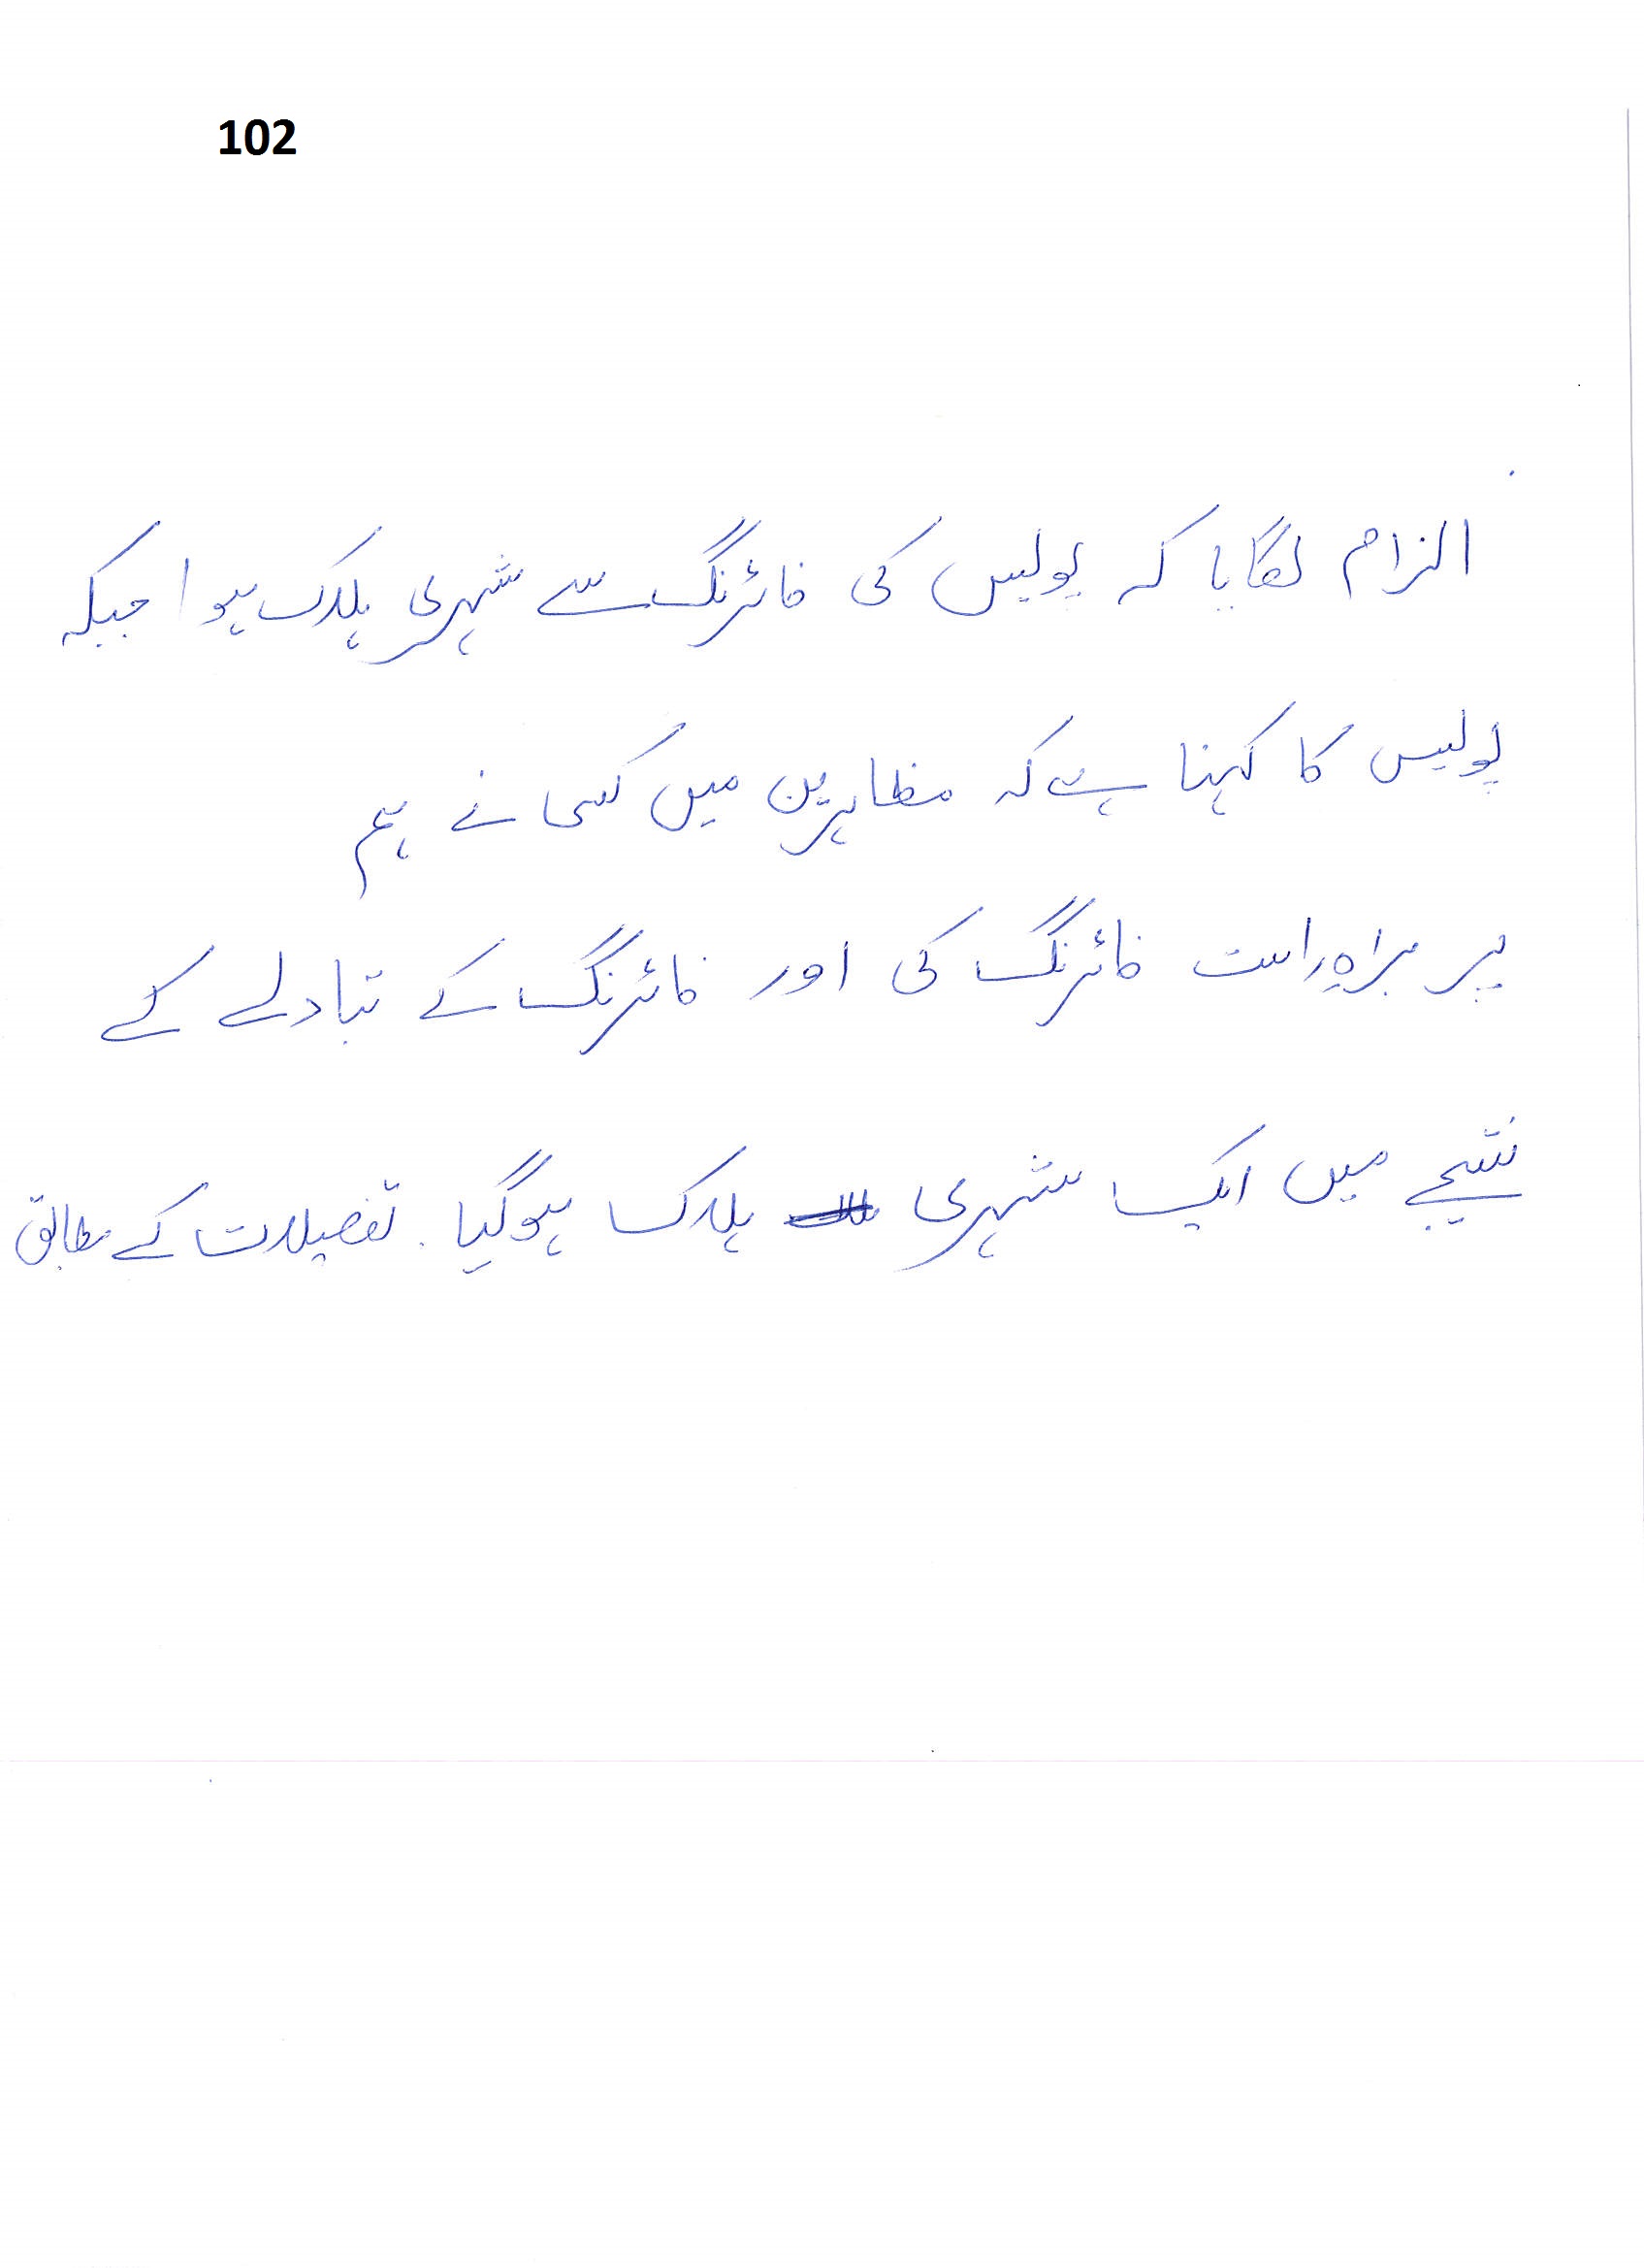 102
الزام لگایا کہ پولیس کی فائرنگ سے شہری ہلاک ہوا جبکہ
پولیس کا کہنا ہے کہ مظاہرین میں کسی نے ہم
پر براہ راست فائرنگ کی اور فائرنگ کے تبادلے کے
نتیجے میں ایک شہری ہلاک ہوگیا۔ تفصیلات کے مطابق